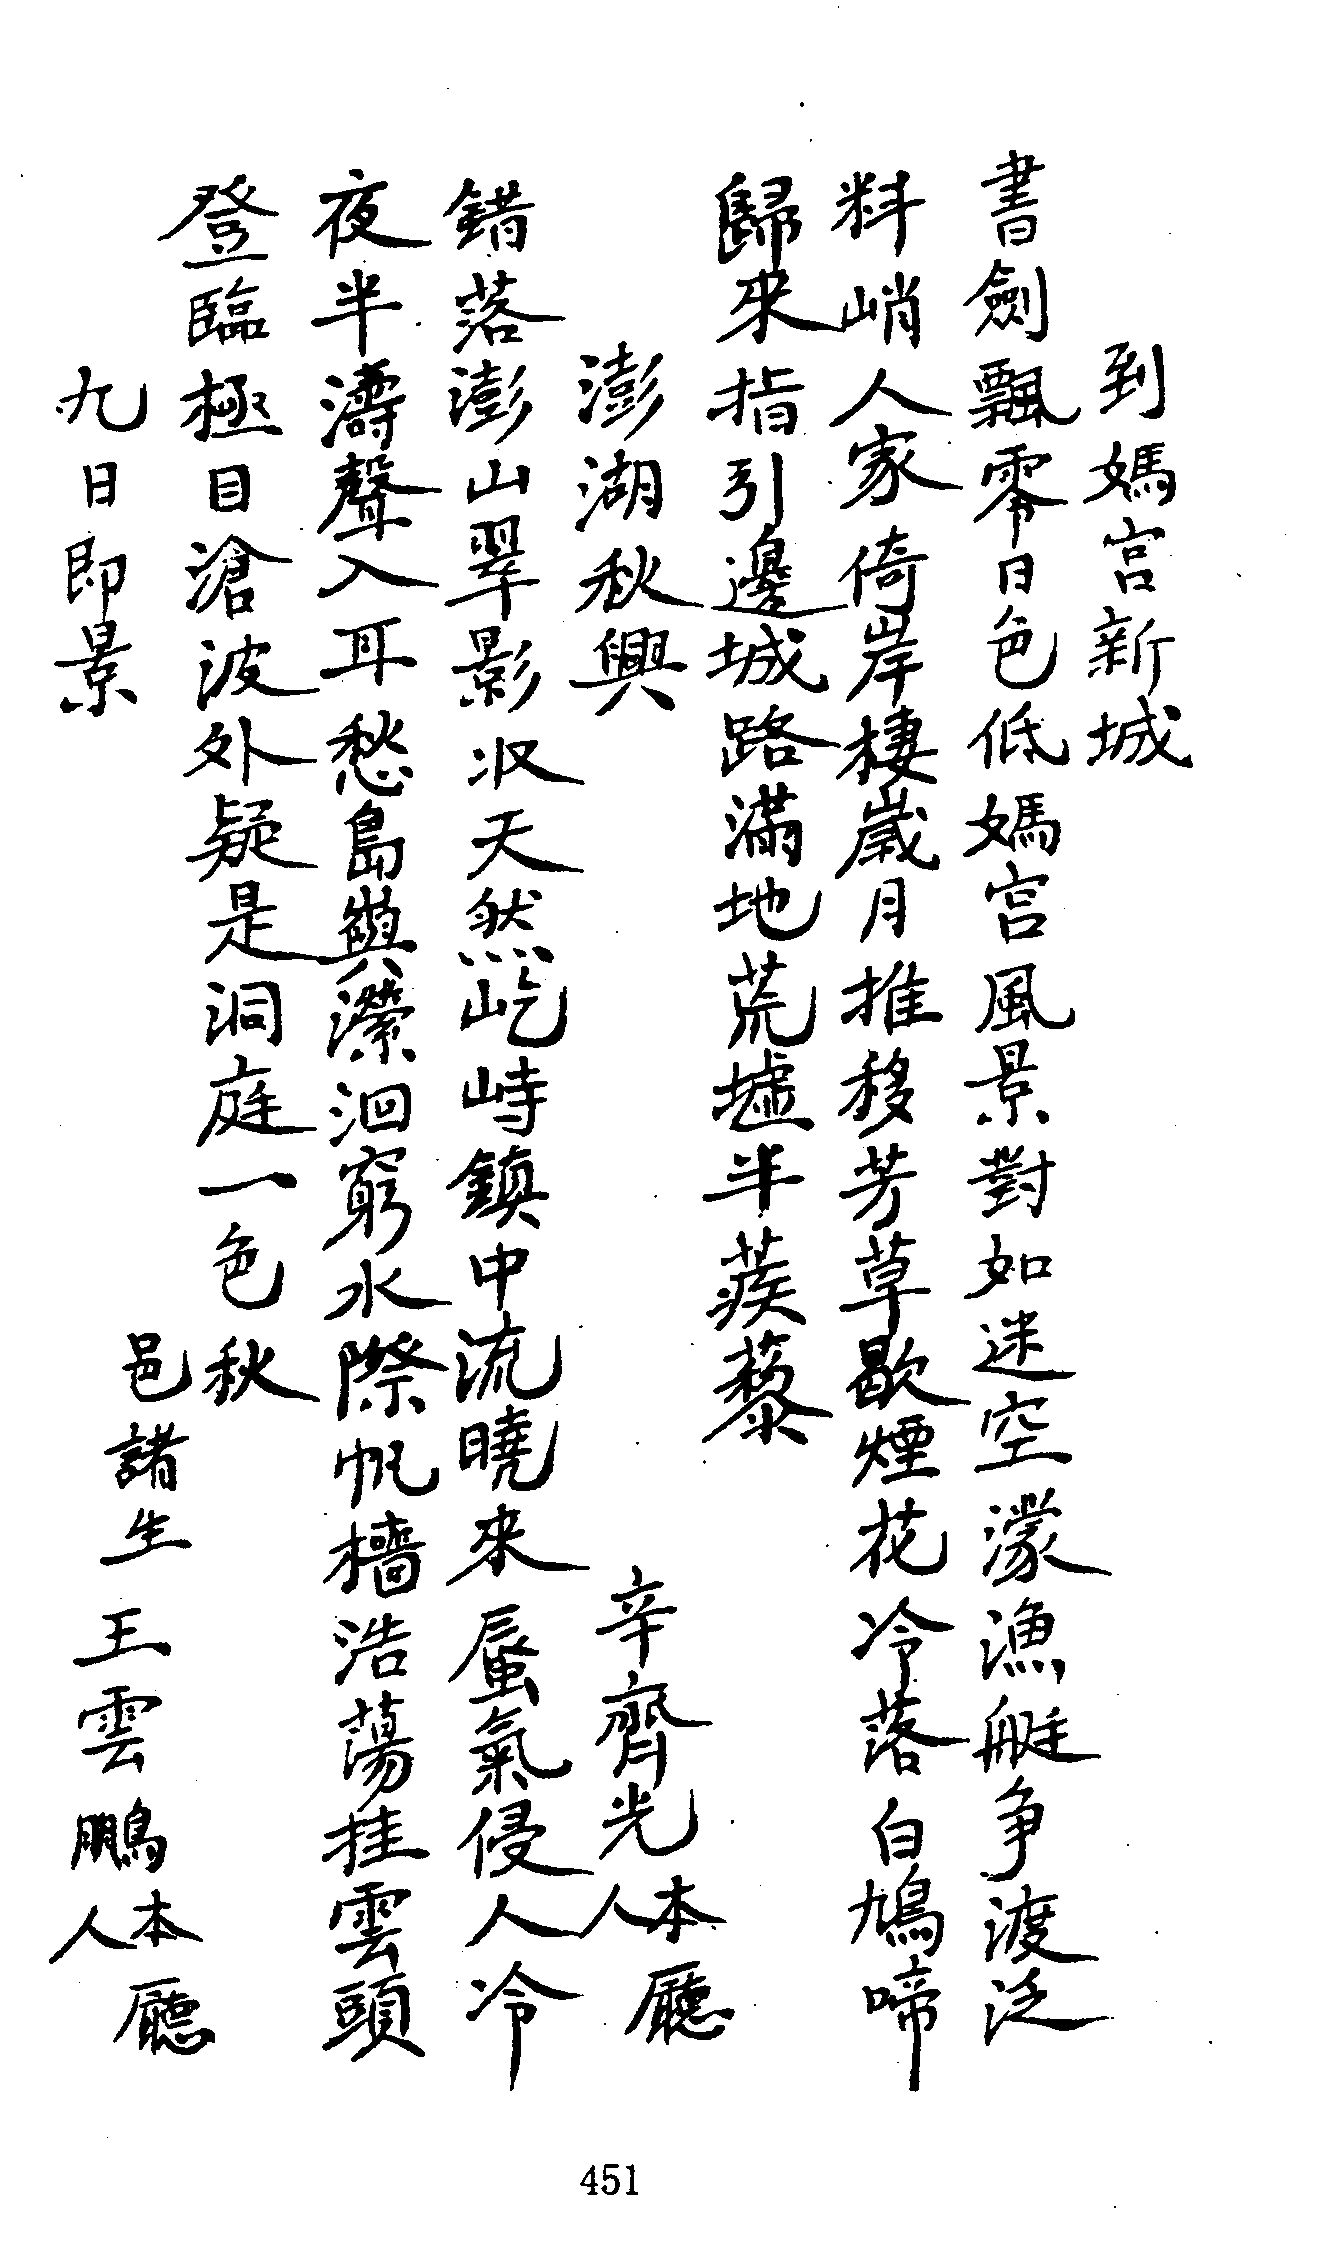 到媽宮新城
書劍飄零日色低媽宮風景對如迷空濛漁艇争渡泛
料峭人家倚岸棲歲月推移芳草歇煙花冷落白鳩啼
歸來指引邊城路滿地荒墟半蒺藜
澎湖秋興 辛齊光本廳人
錯落澎山翠影収天然屹峙鎮中流曉來蜃氣侵人冷
夜半濤聲入耳愁島嶼瀠洄窮水際帆檣浩蕩挂雲頭
登臨極目滄波外疑是洞庭一色秋
九日即景 邑諸生王雲鵬本廳人
451